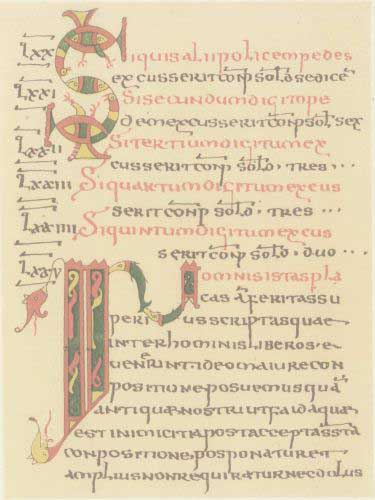 LXX Siquisalii policempedes
excusserit conp sold sedice
LXXI Sisecundumdigitope
demexcusserit conp sol sex
LXXII Sitertiumdigitumex
cusserit conp sold · tres · · ·
LXXIII Siquartumdigitumexcus
serit conp sold · tres · · ·
LXXIIII Siquintumdigitumexcus
serit conp sold · duo · · ·
LXXV In omnisistaspla
cas a feritassu
periusscriptasquae
interhominis liberos e
uenerint · ideomaiorecon
positioneposuemusqua
antiquaenostri utfaidaquae
estinimicitiapostacceptassta
conpositione posponaturet
ampliusnonrequiraturnecdolus